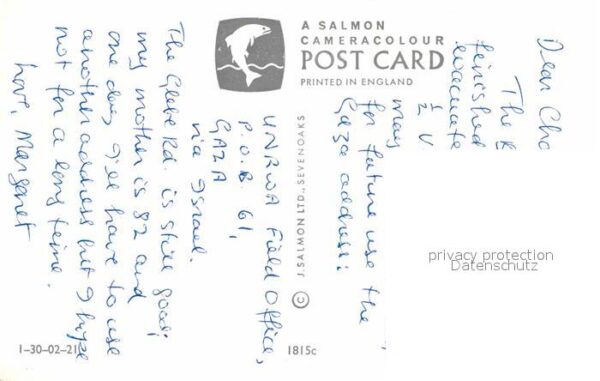 A SALMON
CAMERACOLOUR
POST CARD
PRINTED IN ENGLAND
Dear Cha
The
finished
evacuate
½ V
may
for future use the
Gaza address:
UNRWA Field Office,
P.O.B. 61,
GAZA
via Israel.
The Glebe Rd. is still good;
my mother is 82 and
one day I'll have to use
another address but I hope
not for a long time.
Love, Margaret
© J. SALMON LTD., SEVENOAKS
privacy protection
Datenschutz
1-30-02-21
1815c